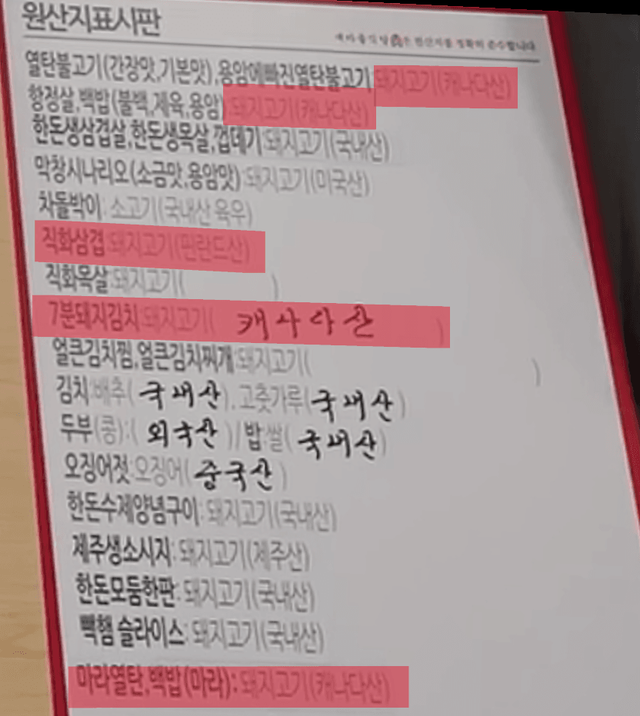 원산지표시판
새마을식당은 원산지를 정확히 준수합니다
열탄불고기(간장맛,기본맛),용암에빠진열탄불고기:돼지고기(캐나다산)
항정살,백밥(불백,제육,용암):돼지고기(캐나다산)
한돈생삼겹살,한돈생목살,껍데기:돼지고기(국내산)
막창시나리오(소금맛,용암맛):돼지고기(미국산)
차돌박이:소고기(국내산 육우)
직화삼겹:돼지고기(핀란드산)
직화목살:돼지고기( )
7분돼지김치:돼지고기( 캐나다산 )
얼큰김치찜,얼큰김치찌개:돼지고기( )
김치:배추( 국내산 ), 고춧가루( 국내산 )
두부(콩):( 외국산 ) / 밥:쌀( 국내산 )
오징어젓:오징어( 중국산 )
한돈수제양념구이: 돼지고기(국내산)
제주생소시지: 돼지고기(제주산)
한돈모둠한판: 돼지고기(국내산)
빽햄 슬라이스: 돼지고기(국내산)
마라열탄,백밥(마라): 돼지고기(캐나다산)